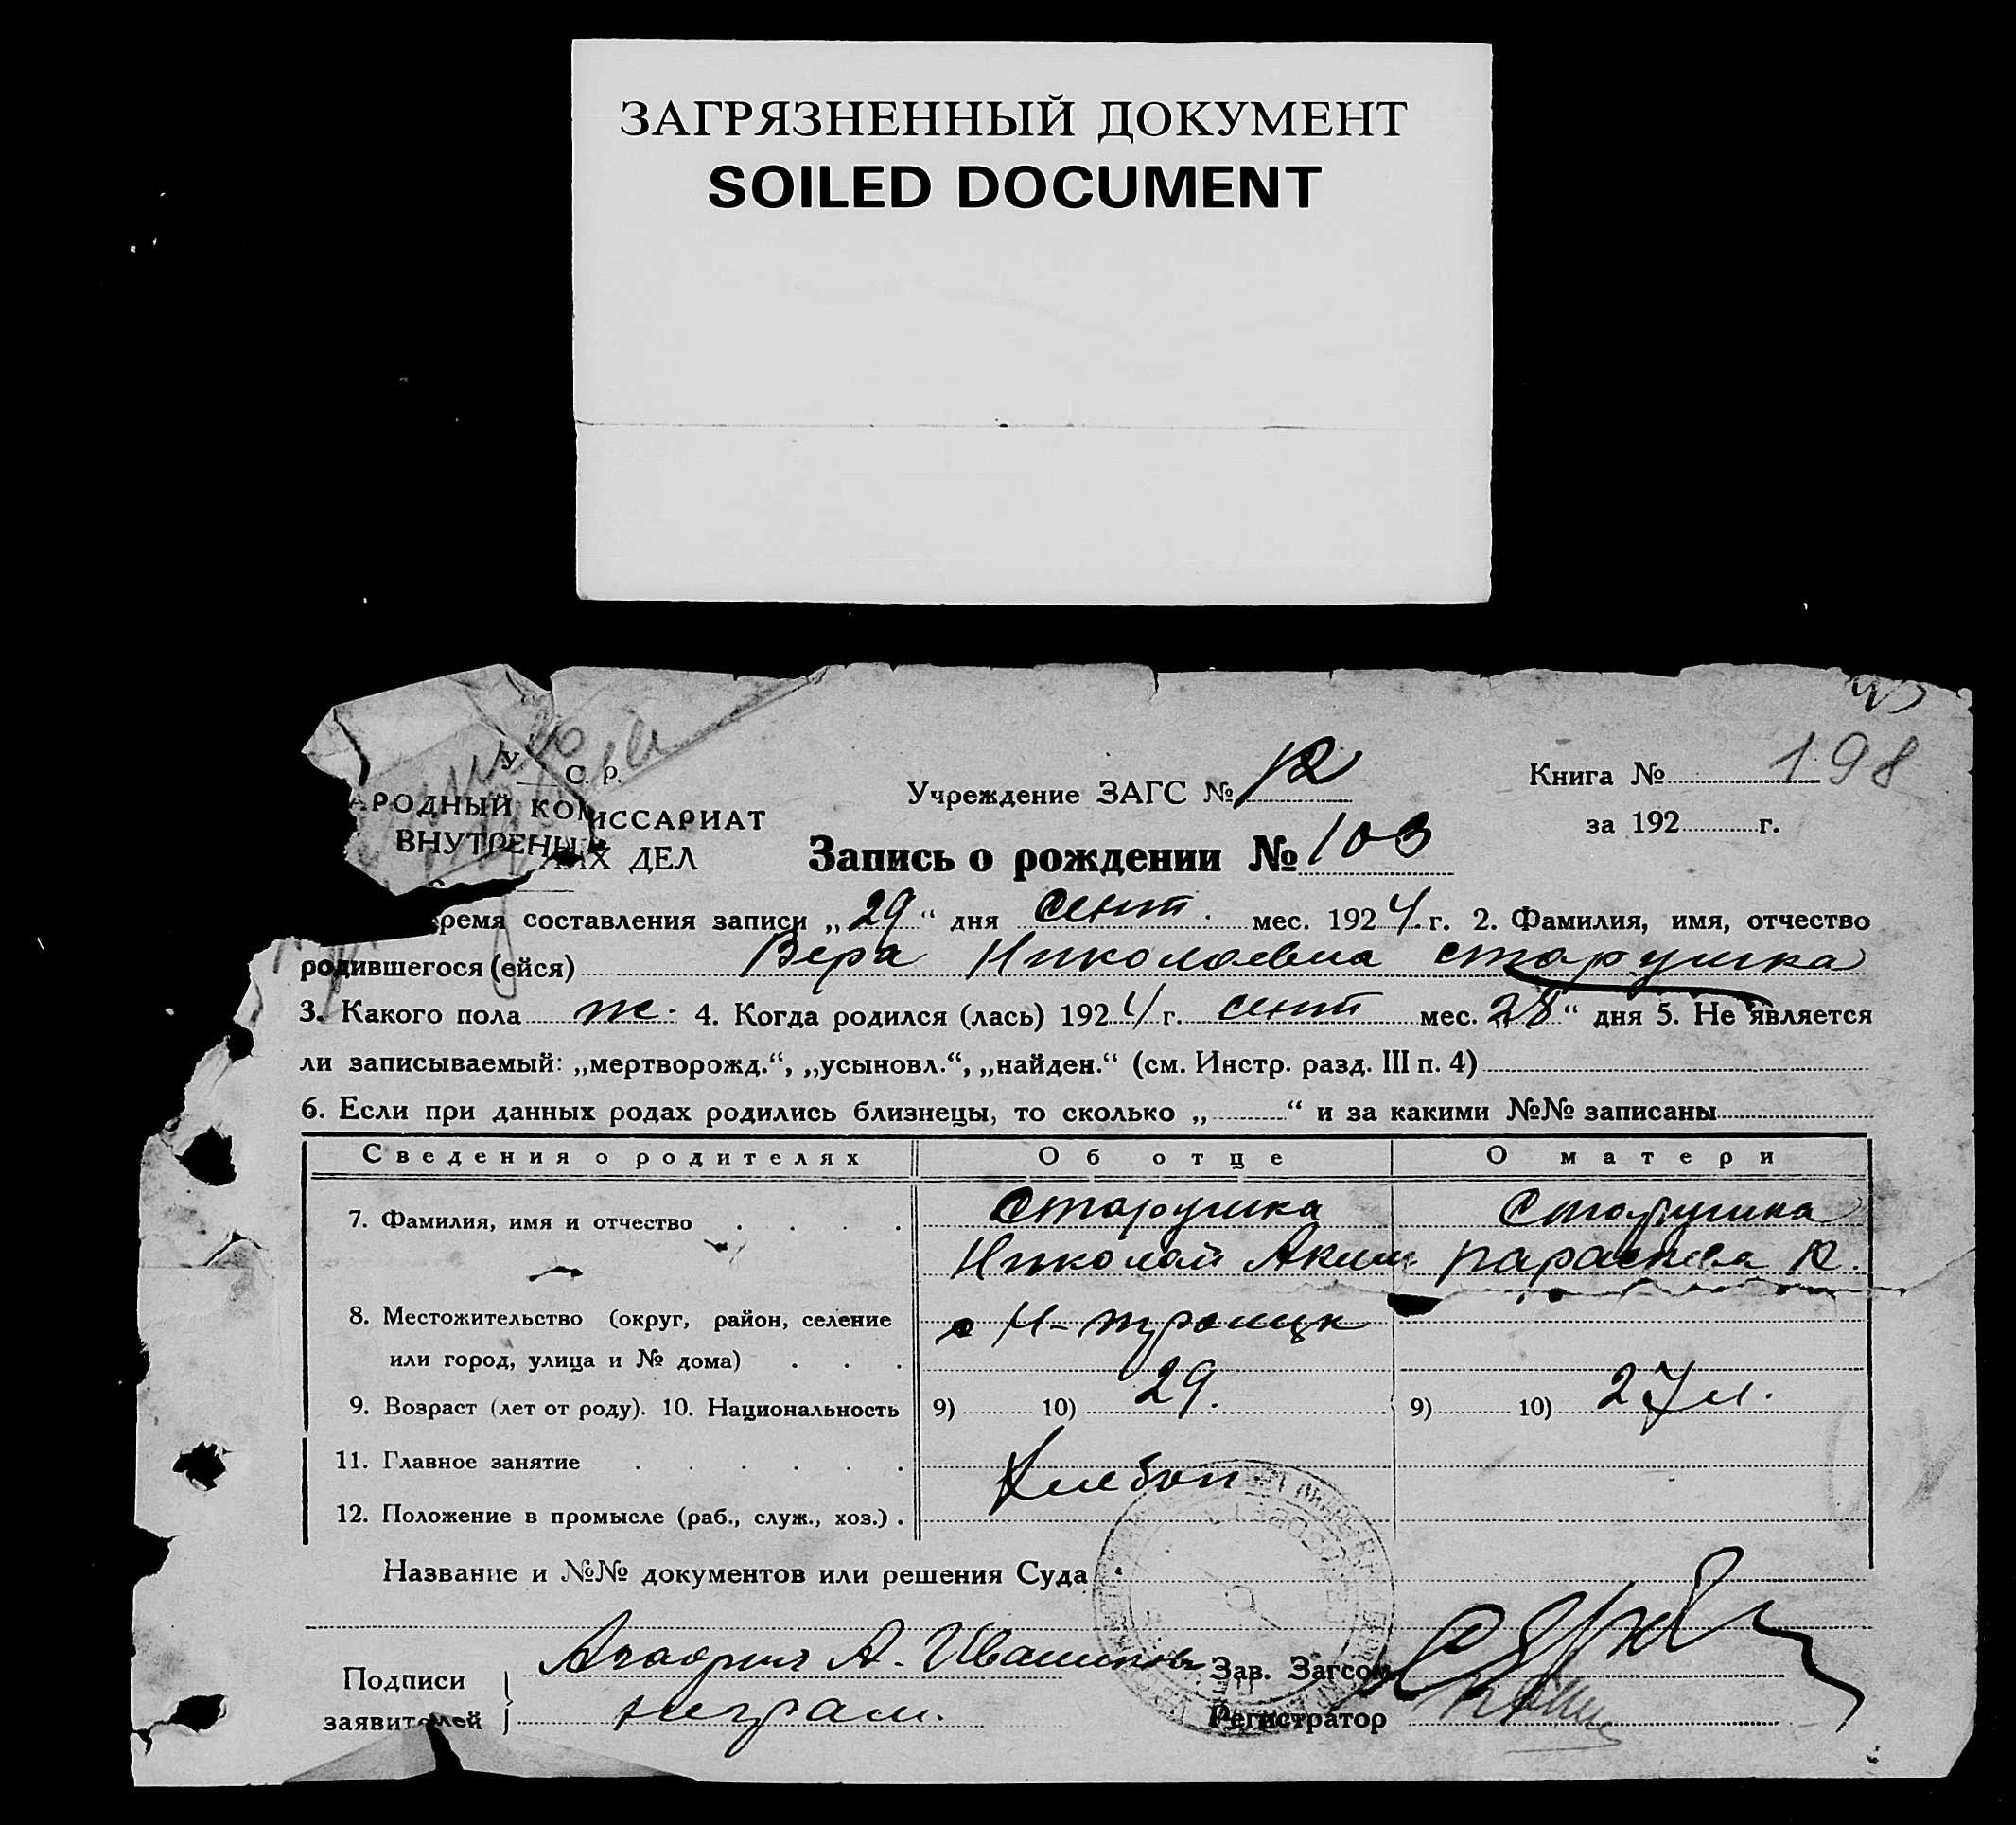 ЗАГРЯЗНЕННЫЙ ДОКУМЕНТ
SOILED DOCUMENT
У С. Р.
АРОДНЫЙ КОМИССАРИАТ
ВНУТРЕННИХ ДЕЛ
Учреждение ЗАГС № 12
Книга № 198
за 192 г.
Запись о рождении № 103
время составления записи „29“ дня сент. мес. 1924 г. 2. Фамилия, имя, отчество
родившегося (ейся) Вера Николаевна Старушка
3. Какого пола ж. 4. Когда родился (лась) 1924 г. сент мес. 28“ дня 5. Не является
ли записываемый: „мертворожд.“, „усыновл.“, „найден.“ (см. Инстр. разд. III п. 4)
6. Если при данных родах родились близнецы, то сколько „ “ и за какими №№ записаны
Сведения о родителях Об отце О матери
7. Фамилия, имя и отчество Старушка Старушка
Николай Аким. Параскева К.
8. Местожительство (округ, район, селение Н-троицк
или город, улица и № дома)
9. Возраст (лет от роду). 10. Национальность 9) 10) 29. 9) 10) 27 л.
11. Главное занятие Хлебоп
12. Положение в промысле (раб., служ., хоз.)
Название и №№ документов или решения Суда
Подписи А. Ивашикова Зав. Загсом
заявителей неграм. Регистратор